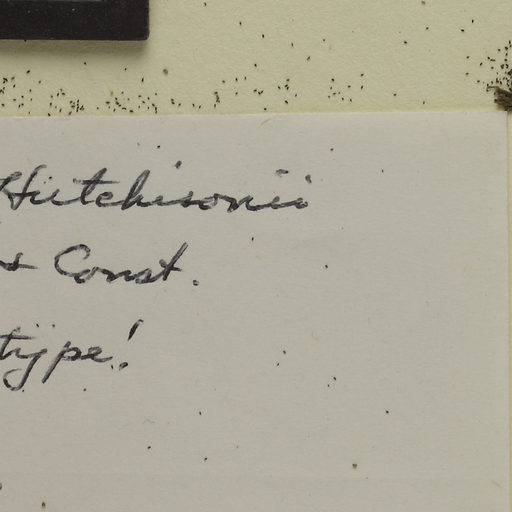 Hutchisonii
Const.
type!